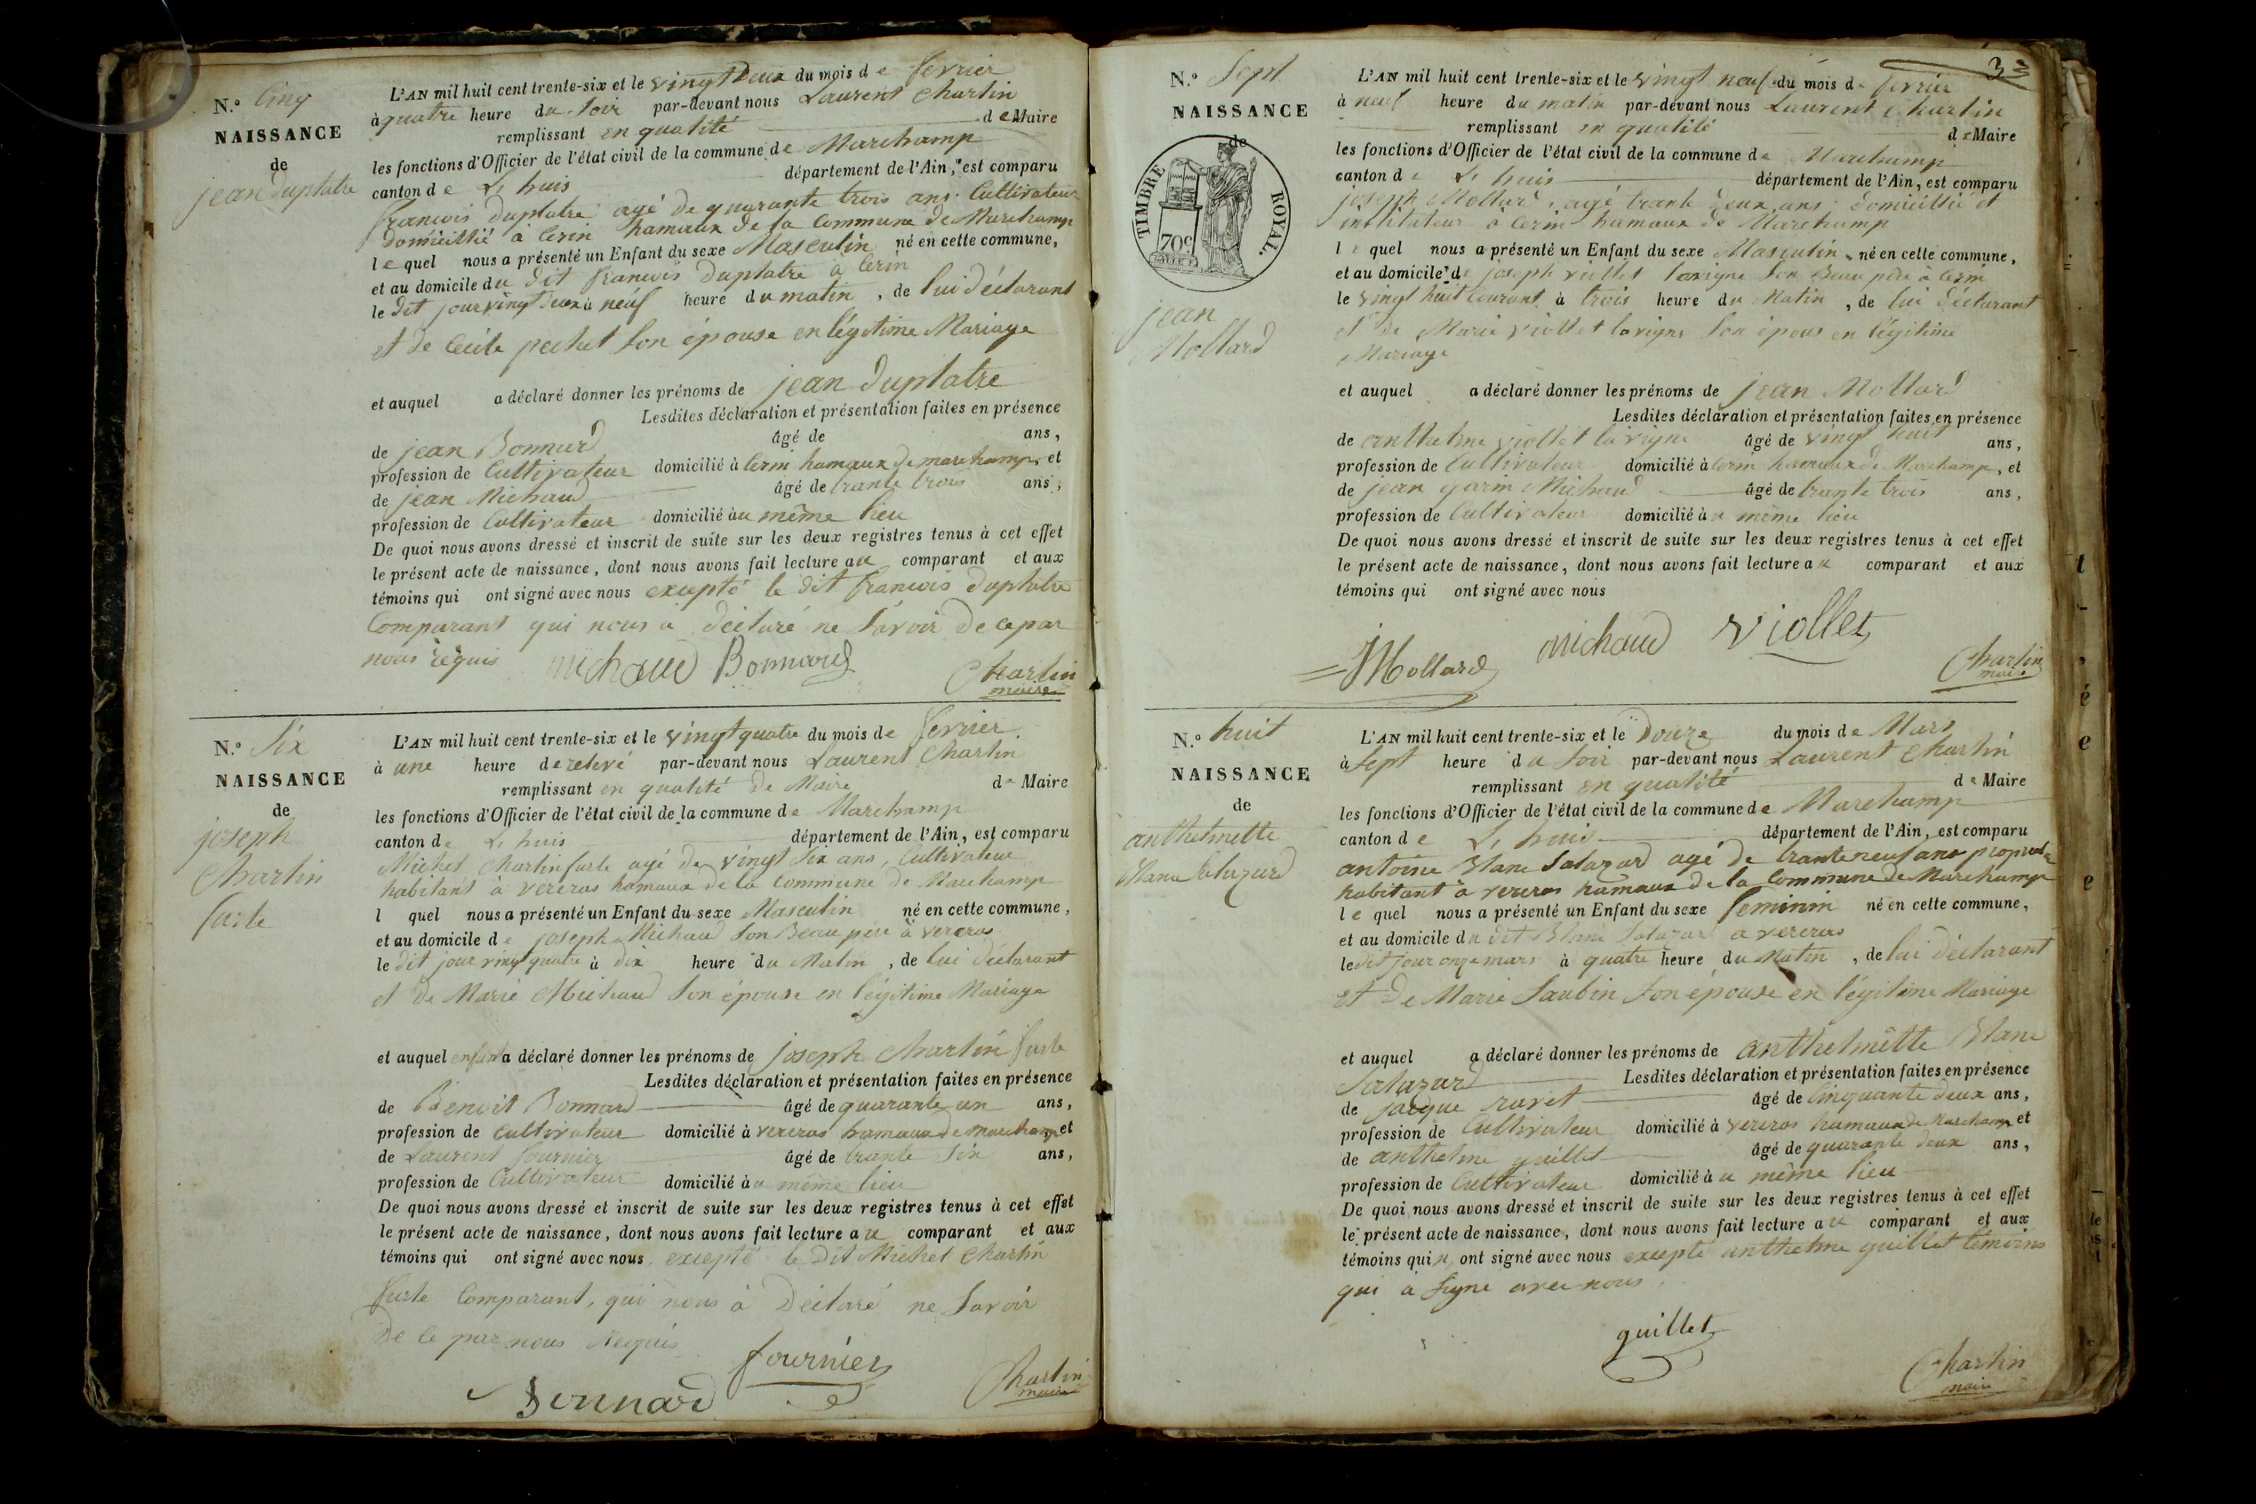 N.º Cinq
NAISSANCE
de
jean duplatre
L'AN mil huit cent trente-six et le vingt Deux du mois de fevrier
à quatre heure du Soir par-devant nous Laurent Charlin
remplissant en qualité de Maire
les fonctions d'Officier de l'état civil de la commune de Marchamp
canton de L, huis département de l'Ain, est comparu
francois duplatre agé de quarante trois ans Cultivateur
domicillié à Cerin hamaux de la Commune de Marchamp
lequel nous a présenté un Enfant du sexe Masculin né en cette commune,
et au domicile du dit francois duplatre à Cerin
le dit jour vingt deux à neuf heure du matin, de lui déclarant
et de Cécile pechet son épouse en légitime Mariage
et auquel a déclaré donner les prénoms de jean duplatre
Lesdites déclaration et présentation faites en présence
de jean Bonnard âgé de ans,
profession de Cultivateur domicilié à Cerin hamaux de marchamp, et
de jean Michaud âgé de trante trois ans,
profession de Cultivateur domicilié au même lieu
De quoi nous avons dressé et inscrit de suite sur les deux registres tenus à cet effet
le présent acte de naissance, dont nous avons fait lecture au comparant et aux
témoins qui ont signé avec nous excepté le dit francois duplatre
Comparant qui nous a déclaré ne Savoir de ce par
nous requis michaud Bonnard Charlin
maire
N.º Six
NAISSANCE
de
joseph
Charlin
furle
L'AN mil huit cent trente-six et le vingt quatre du mois de fevrier
à une heure de relivé par-devant nous Laurent Charlin
remplissant en qualité de Maire de Maire
les fonctions d'Officier de l'état civil de la commune de Marchamp
canton de L, huis département de l'Ain, est comparu
Michel Charlin furle agé de vingt six ans, Cultivateur
habitant à vereras hamaux de la Commune de Marchamp
l quel nous a présenté un Enfant du sexe Masculin né en cette commune,
et au domicile de joseph Michaud son Beau père à vereras
le dit jour vingt quatre à dix heure du Matin, de lui déclarant
et de Marie Michaud son épouse en légitime Mariage
et auquel enfant a déclaré donner les prénoms de joseph Charlin furle
Lesdites déclaration et présentation faites en présence
de Benoit Bonnard âgé de quarante un ans,
profession de Cultivateur domicilié à vereras hamaux de marchamp et
de Laurent fournier âgé de trante Six ans,
profession de Cultivateur domicilié au même lieu
De quoi nous avons dressé et inscrit de suite sur les deux registres tenus à cet effet
le présent acte de naissance, dont nous avons fait lecture au comparant et aux
témoins qui ont signé avec nous excepté le dit Michel Charlin
furle Comparant, qui nous à Déclaré ne Savoir
De ce par nous Requis
fournier
Bonnard Charlin
maire
33
N.º Sept
NAISSANCE
de
TIMBRE ROYAL.
70 c
jean
Mollard
L'AN mil huit cent trente-six et le vingt neuf du mois de fevrier
à neuf heure du matin par-devant nous Laurent Charlin
remplissant en qualité de Maire
les fonctions d'Officier de l'état civil de la commune de Marchamp
canton de L, huis département de l'Ain, est comparu
joseph Mollard, agé trante deux ans domicillié et
instituteur à Cerin hamaux de Marchamp
le quel nous a présenté un Enfant du sexe Masculin né en cette commune,
et au domicile de joseph viollet lavigne son Beau père à Cerin
le vingt huit Courant à trois heure du Matin, de lui déclarant
et de Marie viollet lavigne son épous en légitime
Mariage
et auquel a déclaré donner les prénoms de jean Mollard
Lesdites déclaration et présentation faites en présence
de anthelme viollet lavigne âgé de vingt huit ans,
profession de Cultivateur domicilié à Cerin hameaux de Marchamp, et
de jean garin Michaud âgé de trante trois ans,
profession de Cultivateur domicilié au même lieu
De quoi nous avons dressé et inscrit de suite sur les deux registres tenus à cet effet
le présent acte de naissance, dont nous avons fait lecture au comparant et aux
témoins qui ont signé avec nous
JMollard michaud Viollet Charlin
maire
N.º huit
NAISSANCE
de
anthelmette
Blanc Salazard
L'AN mil huit cent trente-six et le Douze du mois de Mars
à Sept heure du Soir par-devant nous Laurent Charlin
remplissant en qualité de Maire
les fonctions d'Officier de l'état civil de la commune de Marchamp
canton de L, huis département de l'Ain, est comparu
antoine Blanc Salazard agé de trante neuf ans
habitant à vereras hamaux de la Commune de Marchamp
le quel nous a présenté un Enfant du sexe feminin né en cette commune,
et au domicile du dit Blanc Salazard a vereras
le dit jour onze mars à quatre heure du Matin, de lui déclarant
et De Marie Saubin son épouse en légitime Mariage
et auquel a déclaré donner les prénoms de anthelmette Blanc
Salazard Lesdites déclaration et présentation faites en présence
de jacque ravet âgé de Cinquante deux ans,
profession de Cultivateur domicilié à vereras hamaux de Marchamp et
de anthelme guillet âgé de quarante deux ans,
profession de Cultivateur domicilié au même lieu
De quoi nous avons dressé et inscrit de suite sur les deux registres tenus à cet effet
le présent acte de naissance, dont nous avons fait lecture au comparant et aux
témoins qui n ont signé avec nous excepté anthelme guillet témoins
qui à Signe avec nous
guillet
Charlin
maire